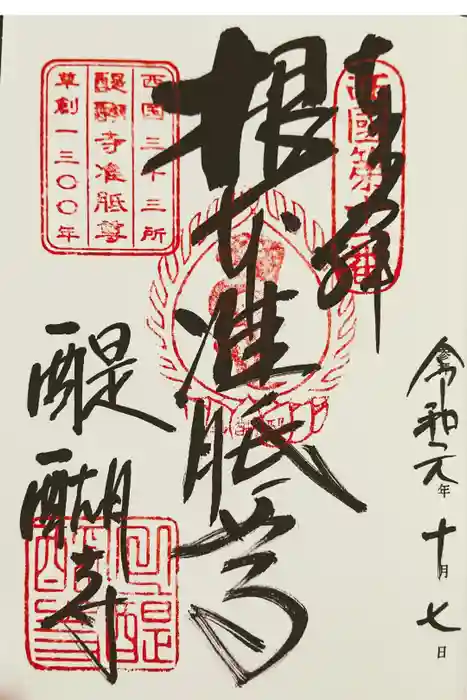 奉拝
西國第十一番
根本准胝尊
西国三十三所
醍醐寺准胝尊
草創一三〇〇年
醍醐寺
令和元年十月七日